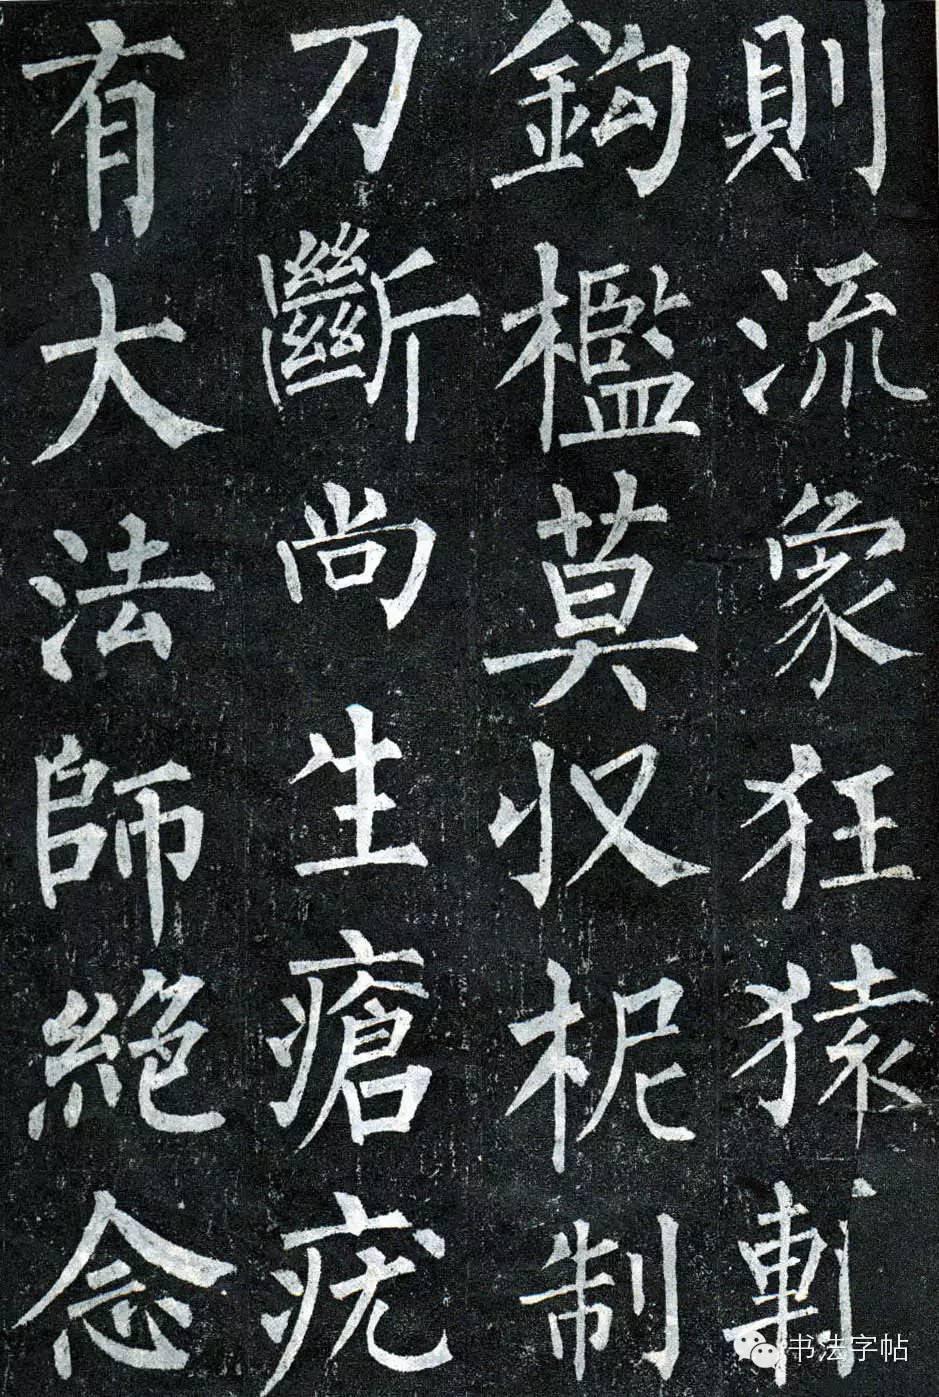 則流象狂猿
鈎檻莫収柅制
刀斷尚生瘡疣
有大法師絕念
书法字帖